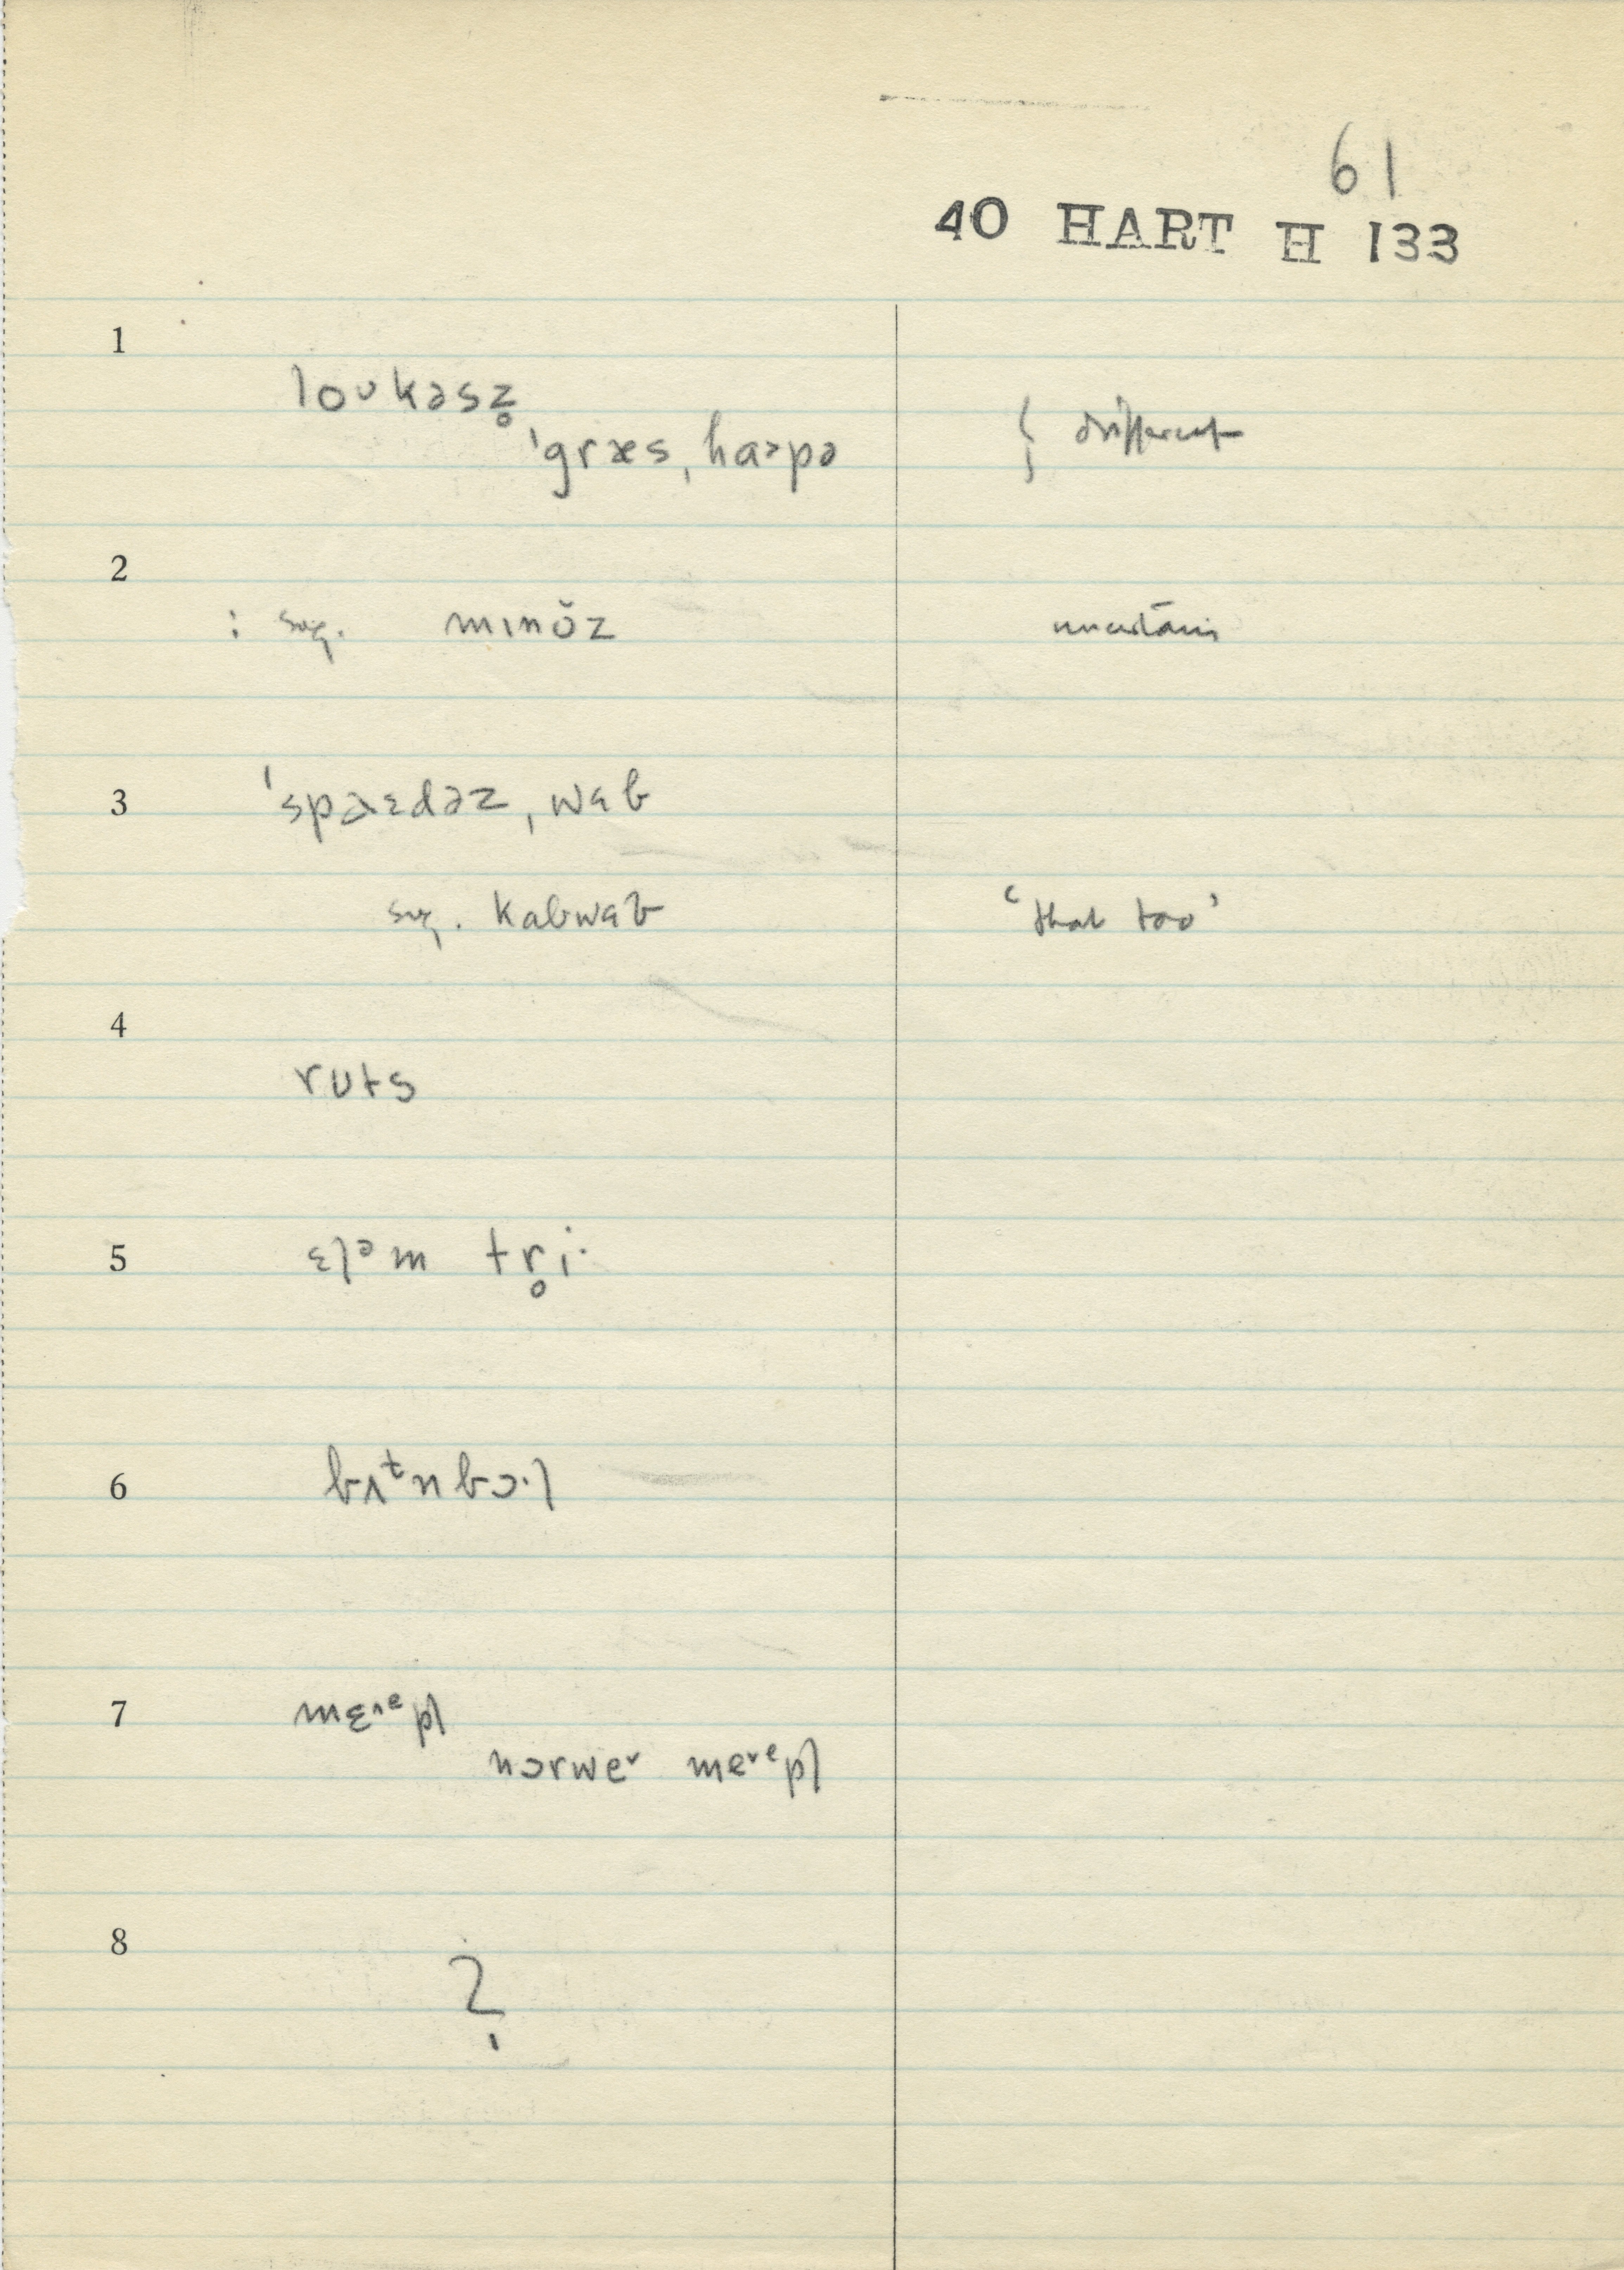 61
40 HART H 133
1
loᴜkəsz̥
ˈgræsˌhaɚpə { different
2
: sug. mɪnŏz uncertain
3
ˈspaɛdəzˌwɛb
sug. kabwɛb ‘that too’
4
rᴜts
5
ɛlᵊm tr̥i·
6
bʌᵗnbɔ·l
7
mɛʳᵉpl
nɔrweʳ meʳᵉpl
8
?